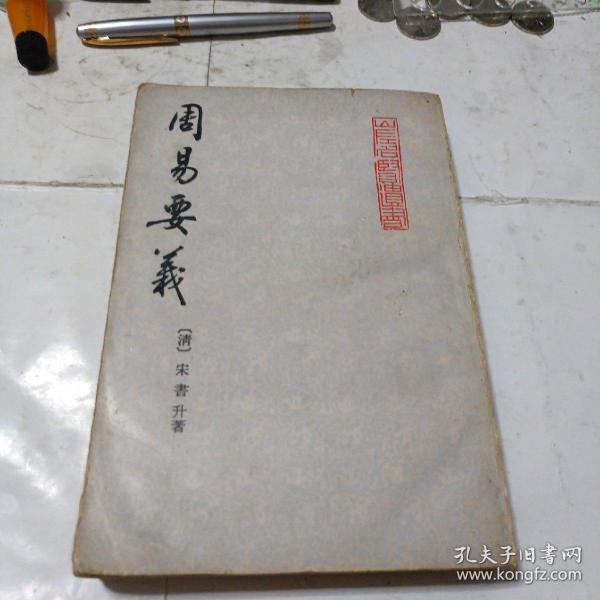 周易要義
〔清〕宋書升著
山左名賢遺書
孔夫子旧书网
www.kongfz.com